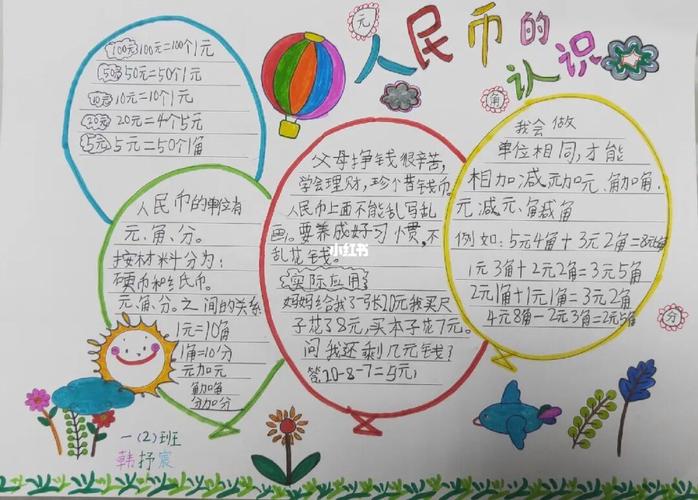 人民币的
认识
元
角
分
100元 100元=100个1元
50元 50元=50个1元
10元 10元=10个1元
20元 20元=4个5元
5元 5元=50个1角
人民币的单位有
元、角、分。
按材料分为:
硬币和纸币。
元、角、分。之间的关系
1元=10角
1角=10分
元加元
角加角
分加分
父母挣钱很辛苦,
学会理财,珍惜钱币。
人民币上面不能乱写乱
画。要养成好习惯,不
乱花钱。
实际应用
妈妈给我了一张20元我买尺
子花了8元,买本子花7元。
问我还剩几元钱?
答20-8-7=5元
小红书
我会做
单位相同,才能
相加减元加元、角加角、
元减元、角减角
例如:5元4角+3元2角=8元6角
1元3角+2元2角=3元5角
2元1角+1元1角=3元2角
4元8角-2元3角=2元5角
一(2)班
韩抒宸